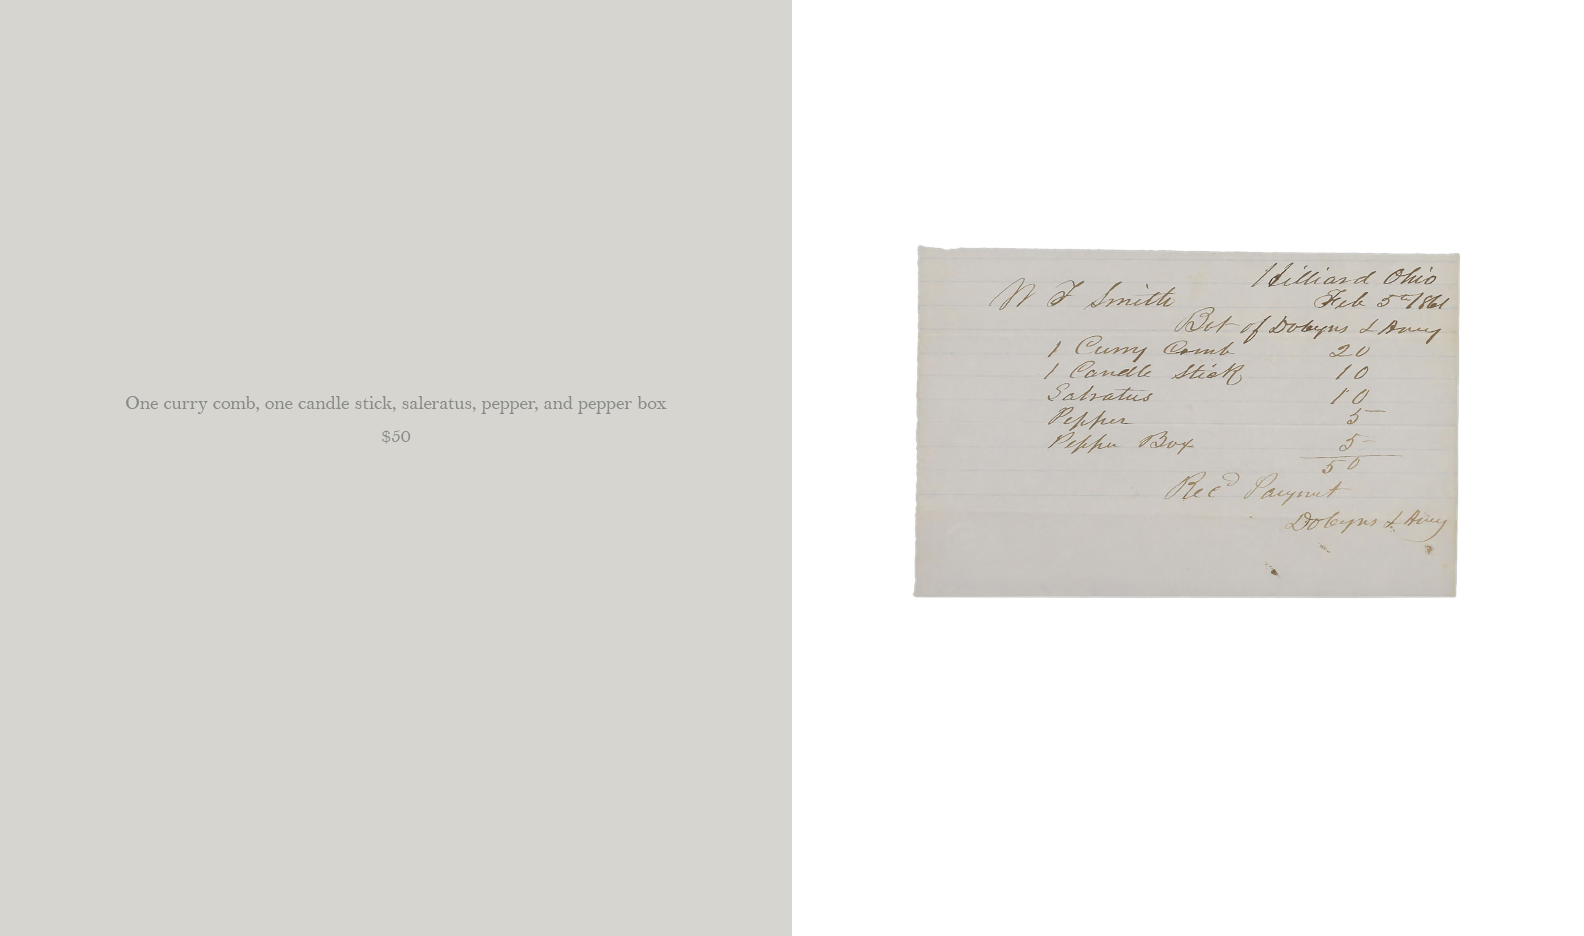 One curry comb, one candle stick, saleratus, pepper, and pepper box
$50
Hilliard Ohio
W F Smith Feb 5th 1861
Bot of Dobyns & Avey
1 Curry Comb 20
1 Candle Stick 10
Salratus 10
Pepper 5
Pepper Box 5
50
Recd Paymnt
Dobyns & Avey